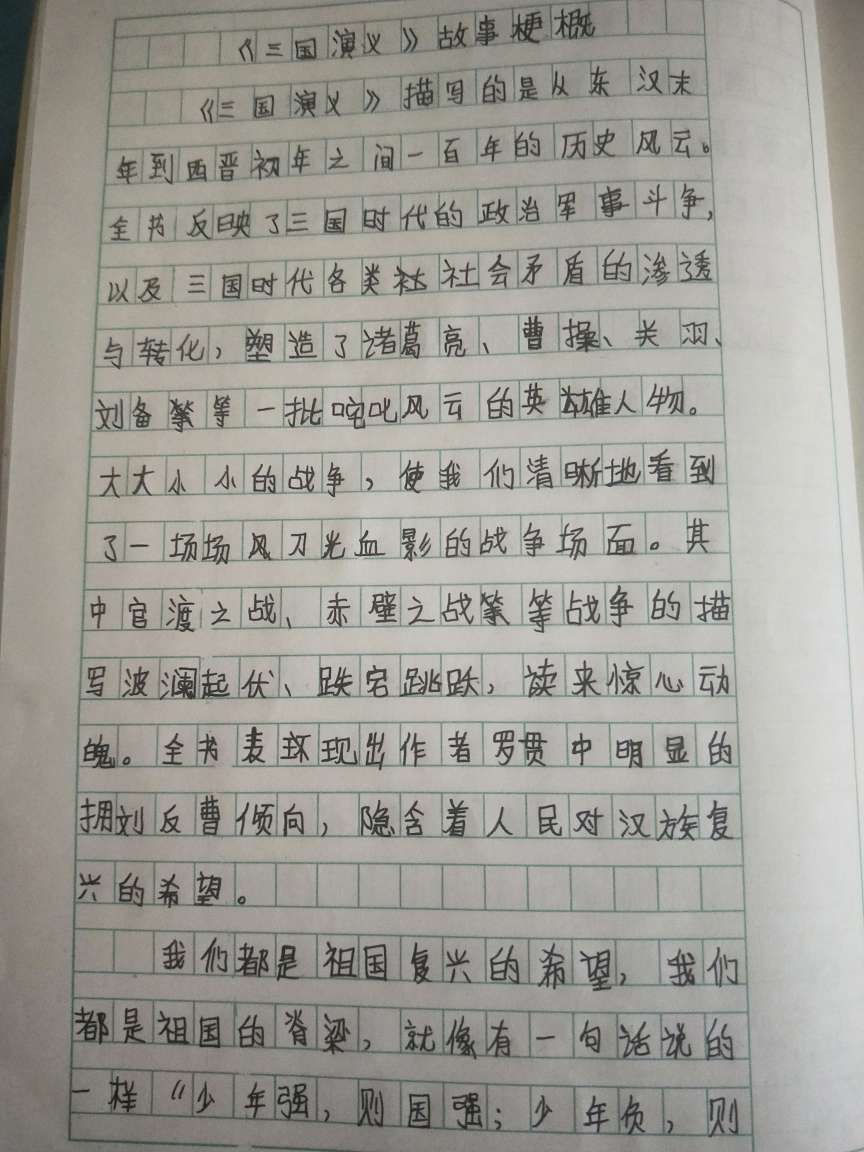 《三国演义》故事梗概
《三国演义》描写的是从东汉末
年到西晋初年之间一百年的历史风云。
全书反映了三国时代的政治军事斗争,
以及三国时代各类社会矛盾的渗透
与转化,塑造了诸葛亮、曹操、关羽、
刘备等一批咤叱风云的英雄人物。
大大小小的战争,使我们清晰地看到
了一场场刀光血影的战争场面。其
中官渡之战、赤壁之战等战争的描
写波澜起伏、跌宕跳跃,读来惊心动
魄。全书表现出作者罗贯中明显的
拥刘反曹倾向,隐含着人民对汉族复
兴的希望。
我们都是祖国复兴的希望,我们
都是祖国的脊梁,就像有一句话说的
一样“少年强,则国强;少年负,则